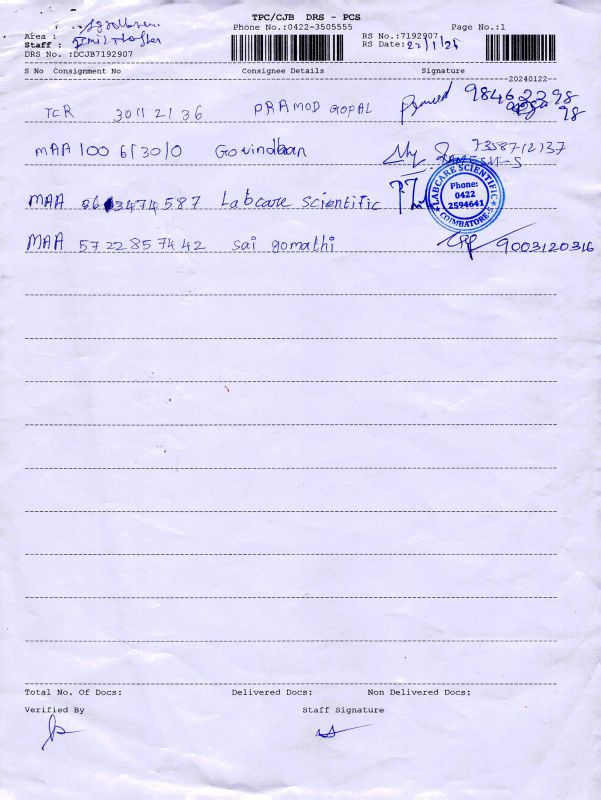 TPC/CJB DRS - PCS
Phone No.:0422-3505555
Page No.:1
Area :
Staff :
DRS No. :DCJB7192907
RS No.:7192907
RS Date:
S No Consignment No Consignee Details Signature
20240122
TCR 30112136 PRAMOD GOPAL
MAA 100 613010 Govindban 7358712137
RAMESH-S
MAA 663474587 Labcare Scientific
LABCARE SCIENTIFIC
Phone:
0422
2594641
COIMBATORE-5
MAA 5722857442 sai gomathi 9003120316
Total No. Of Docs: Delivered Docs: Non Delivered Docs:
Verified By Staff Signature